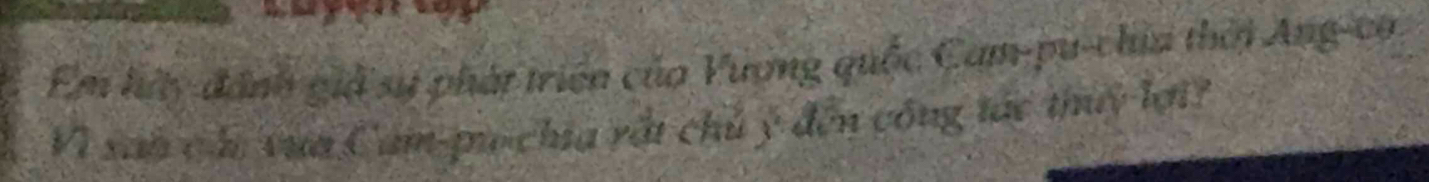 Luyện tập
Em hãy đánh giá sự phát triển của Vương quốc Cam-pu-chia thời Ăng-co.
Vì sao các vua Cam-pu-chia rất chú ý đến công tác thuỷ lợi?